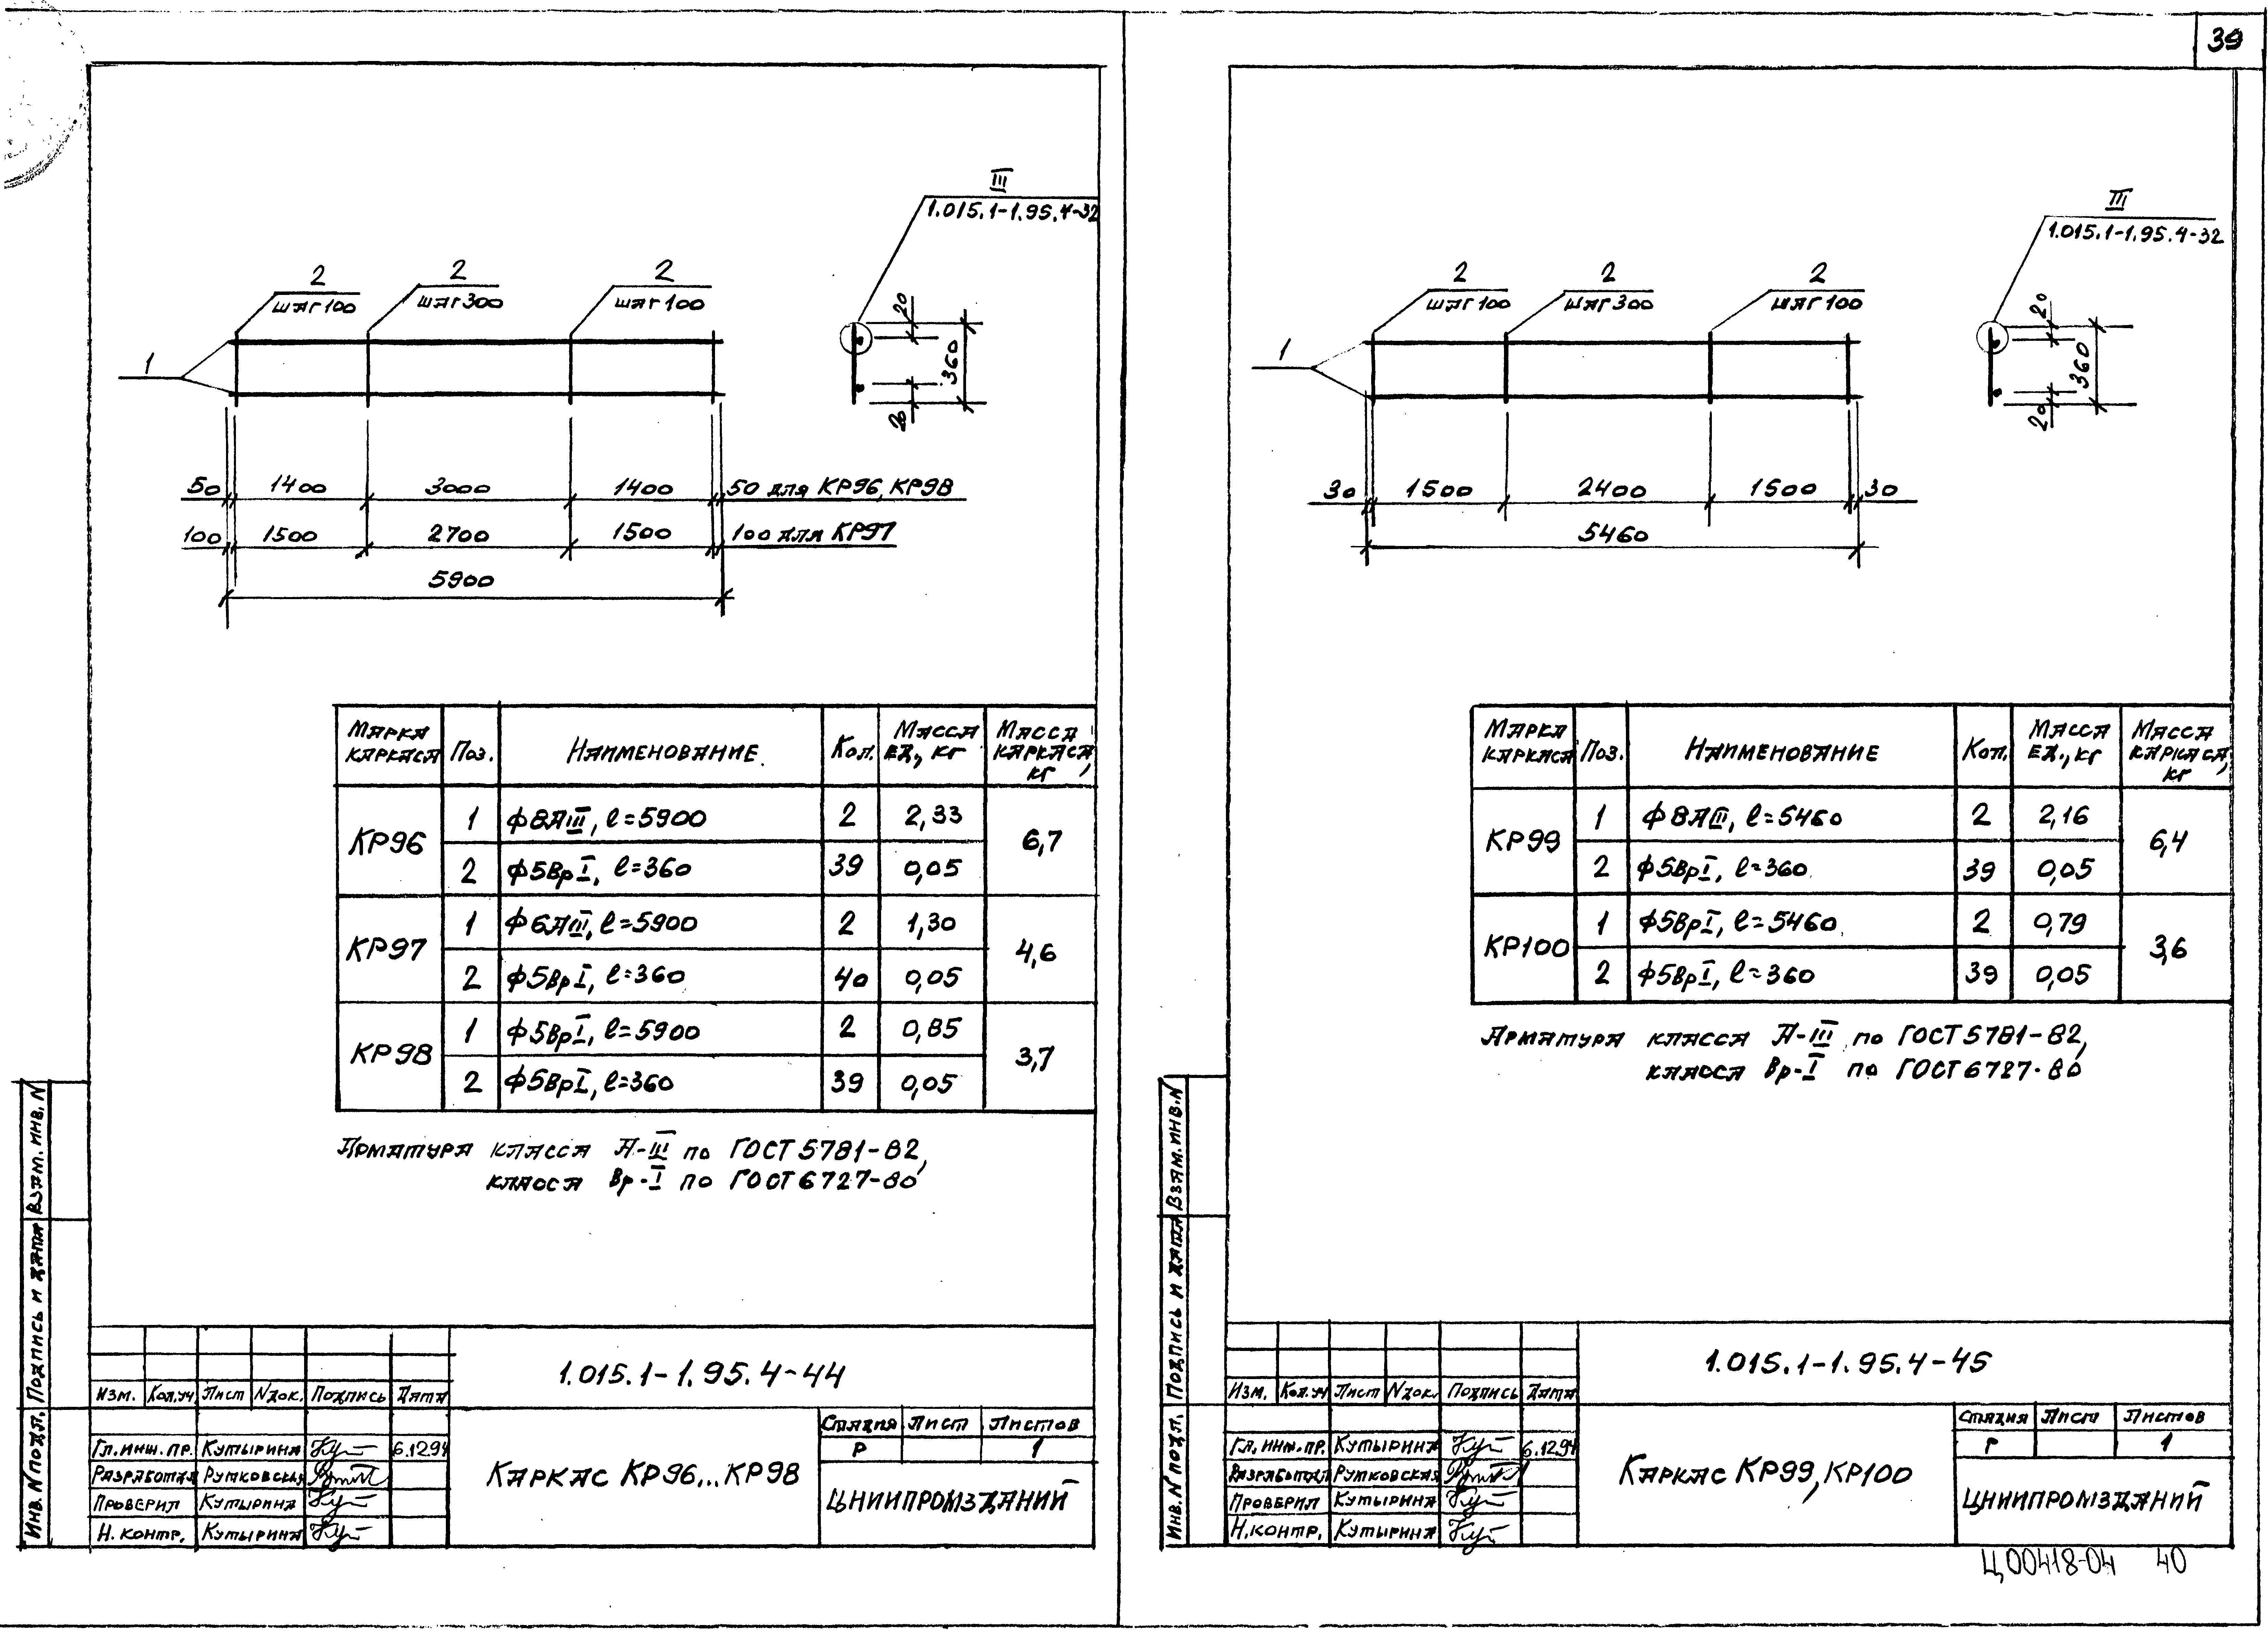 39
III
1.015.1-1.95.4-32
2
шаг 100
2
шаг 300
2
шаг 100
1
20
360
20
50 1400 3000 1400 50 для КР96, КР98
100 1500 2700 1500 100 для КР97
5900
Марка каркаса Поз. Наименование Кол. Масса ед., кг Масса каркаса, кг
КР96 1 ф8АIII, l=5900 2 2,33 6,7
2 ф5ВрI, l=360 39 0,05
КР97 1 ф6АIII, l=5900 2 1,30 4,6
2 ф5ВрI, l=360 40 0,05
КР98 1 ф5ВрI, l=5900 2 0,85 3,7
2 ф5ВрI, l=360 39 0,05
Арматура класса А-III по ГОСТ 5781-82,
класса Вр-I по ГОСТ 6727-80
Взам. инв. N
Подпись и дата
Инв. N подл.
1.015.1-1.95.4-44
Изм. Кол.уч Лист Nдок. Подпись Дата
Гл. инж. пр. Кутырина 6.12.94
Разработал Рутковская
Проверил Кутырина
Н. контр. Кутырина
Каркас КР96...КР98
Стадия Лист Листов
Р 1
ЦНИИПРОМЗДАНИЙ
III
1.015.1-1.95.4-32
2
шаг 100
2
шаг 300
2
шаг 100
1
20
360
20
30 1500 2400 1500 30
5460
Марка каркаса Поз. Наименование Кол. Масса ед., кг Масса каркаса, кг
КР99 1 ф8АIII, l=5460 2 2,16 6,4
2 ф5ВрI, l=360 39 0,05
КР100 1 ф5ВрI, l=5460 2 0,79 3,6
2 ф5ВрI, l=360 39 0,05
Арматура класса А-III по ГОСТ 5781-82,
класса Вр-I по ГОСТ 6727-80
Взам. инв. N
Подпись и дата
Инв. N подл.
1.015.1-1.95.4-45
Изм. Кол.уч Лист Nдок. Подпись Дата
Гл. инж. пр. Кутырина 6.12.94
Разработал Рутковская
Проверил Кутырина
Н. контр. Кутырина
Каркас КР99, КР100
Стадия Лист Листов
Р 1
ЦНИИПРОМЗДАНИЙ
Ц00418-04 40